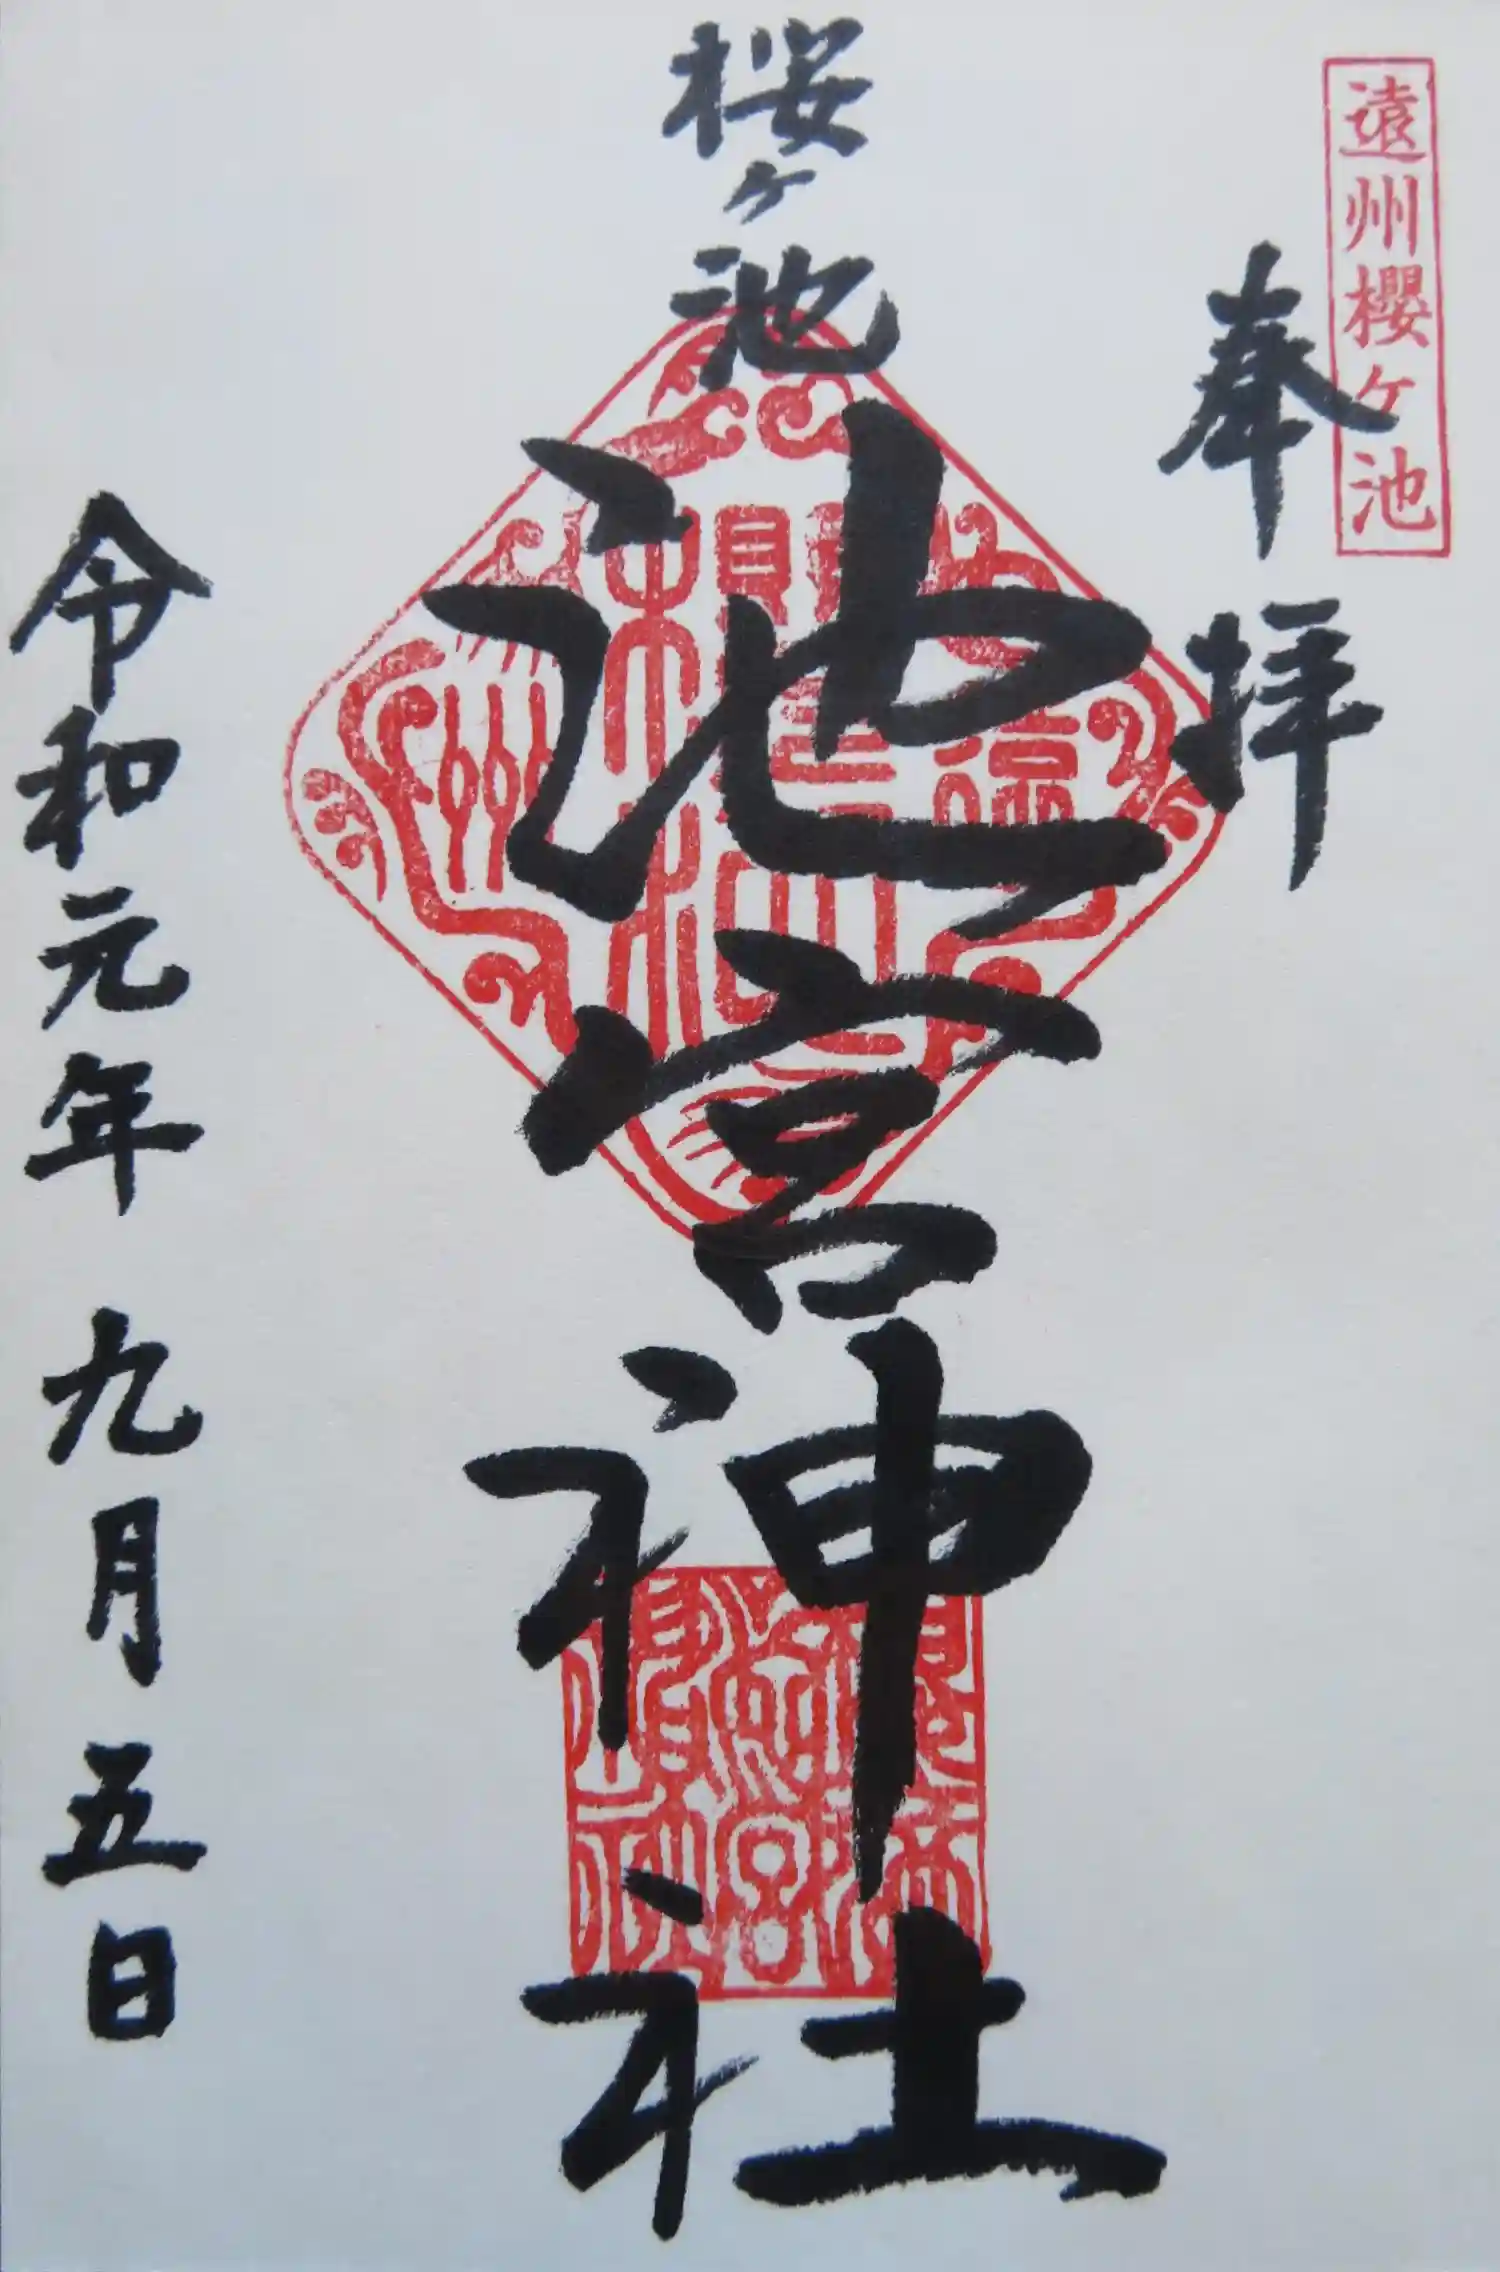 遠州櫻ヶ池
奉拝
桜ヶ池
池宮神社
令和元年九月五日